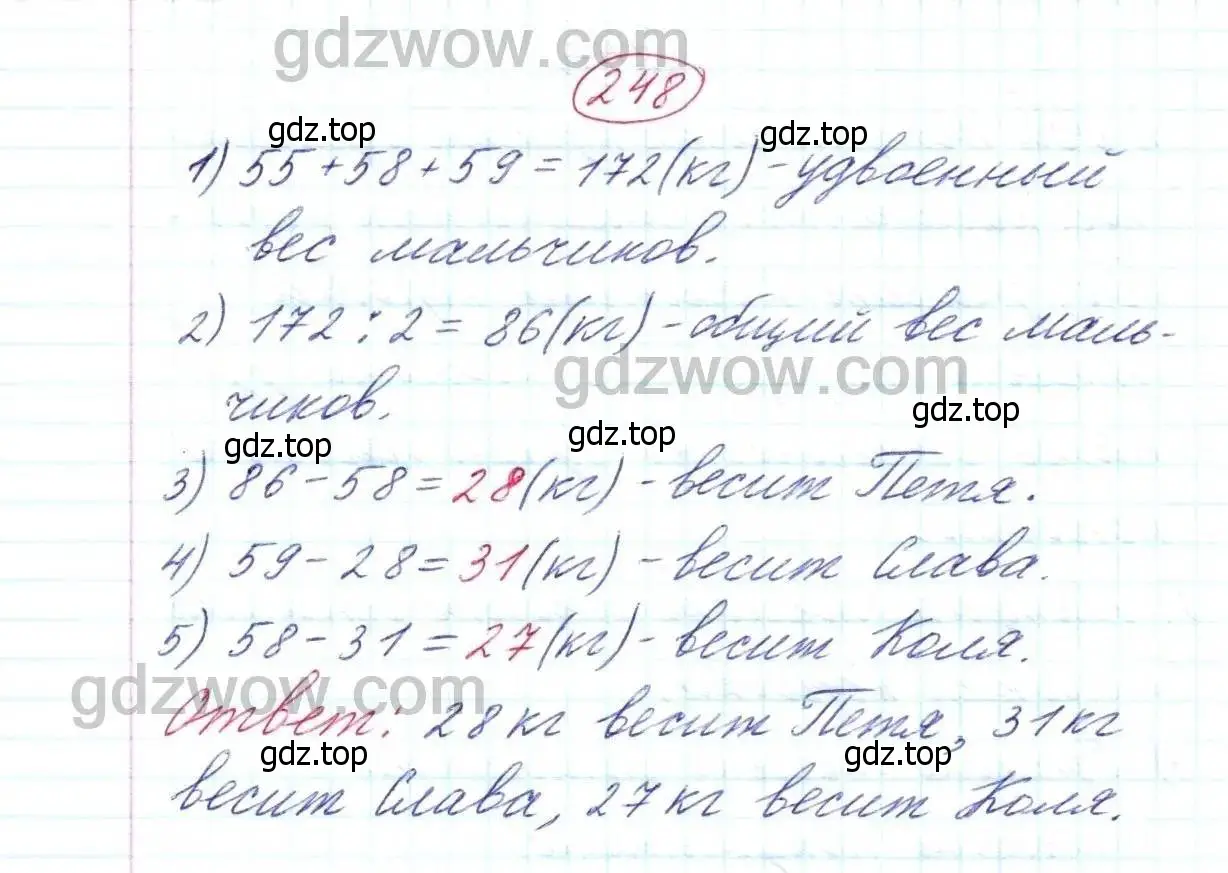 gdzwow.com
248
gdz.top gdz.top
1) 55+58+59=172(кг)-удвоенный
вес мальчиков.
2) 172:2= 86(кг)-общий вес маль-
gdzwow.com
чиков.
gdz.top gdz.top gdz.top
3) 86-58=28(кг)-весит Петя.
4) 59-28=31(кг)-весит Слава.
5) 58-31=27(кг)-весит Коля.
gdzwow.com
Ответ: 28кг весит Петя, 31кг
gdz.top gdz.top
весит Слава, 27кг весит Коля.